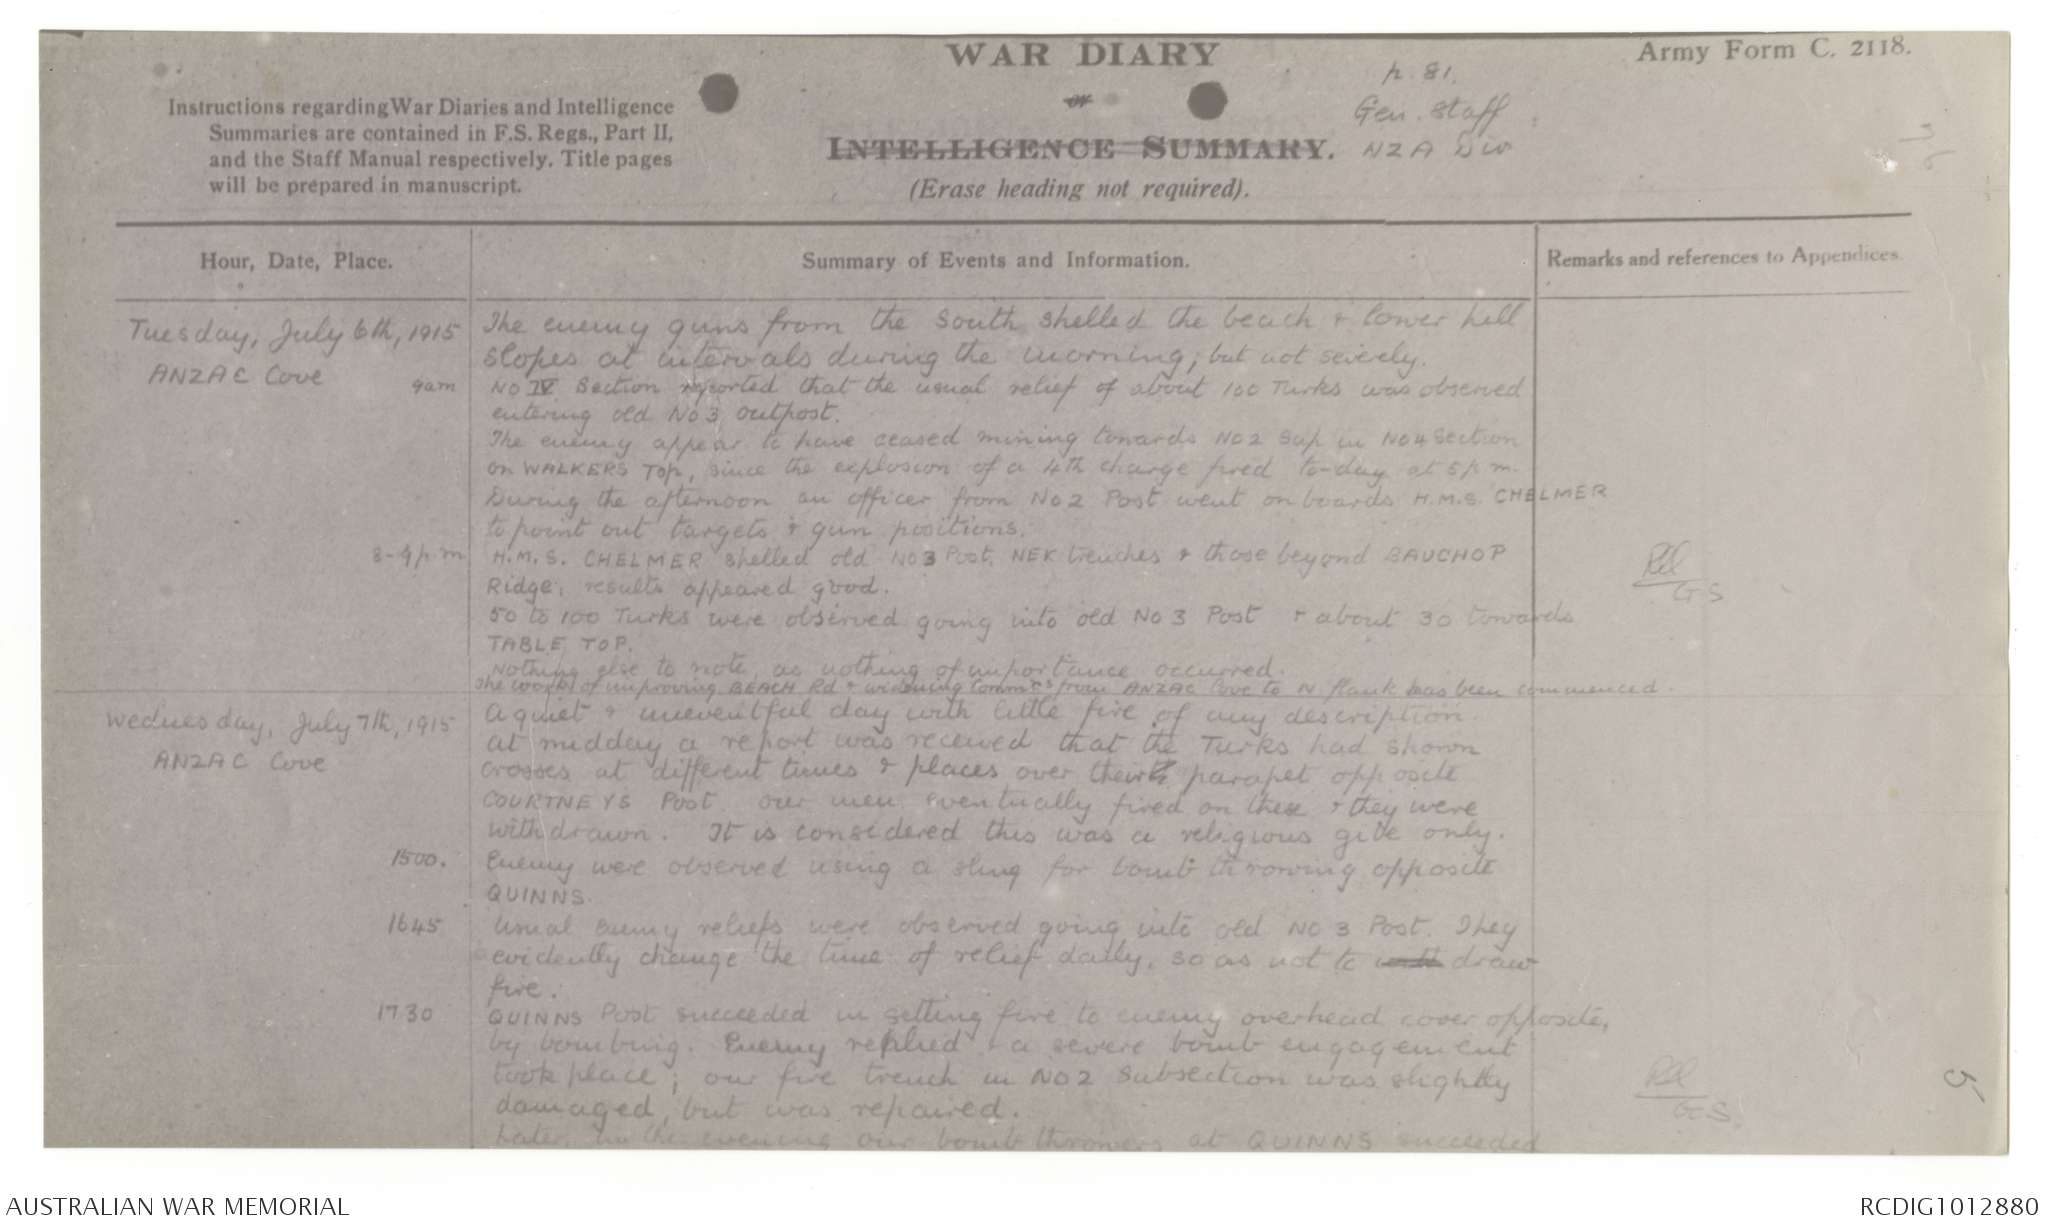 WAR DIARY
or
INTELLIGENCE SUMMARY.
(Erase heading not required).
Army Form C. 2118.
p. 81.
Gen. Staff
NZA Div
Instructions regarding War Diaries and Intelligence
Summaries are contained in F.S. Regs., Part II,
and the Staff Manual respectively. Title pages
will be prepared in manuscript.
Hour, Date, Place.
Summary of Events and Information.
Remarks and references to Appendices.
Tuesday, July 6th, 1915
ANZAC Cove
The enemy guns from the South shelled the beach & lower hill
slopes at intervals during the morning, but not severely.
9am No IV Section reported that the usual relief of about 100 Turks was observed
entering old No 3 outpost.
The enemy appear to have ceased mining towards No 2 Sap in No 4 Section
on WALKERS TOP, since the explosion of a 4th charge fired to-day at 5 p.m.
During the afternoon an officer from No 2 Post went on boards H.M.S. CHELMER
to point out targets & gun positions.
8-9 p.m H.M.S. CHELMER shelled old No 3 Post, NEK trenches & those beyond BAUCHOP
Ridge; results appeared good.
50 to 100 Turks were observed going into old No 3 Post & about 30 towards
TABLE TOP.
Nothing else to note, as nothing of importance occurred.
The work of improving BEACH Rd & widening Comm'ns from ANZAC Cove to N flank has been commenced.
GS
Wednesday, July 7th, 1915
ANZAC Cove
A quiet & uneventful day with little fire of any description
At midday a report was received that the Turks had shown
crosses at different times & places over their parapet opposite
COURTNEYS Post. Our men eventually fired on these & they were
withdrawn. It is considered this was a religious gibe only.
1500. Enemy were observed using a sling for bomb throwing opposite
QUINNS.
1645 Usual enemy reliefs were observed going into old No 3 Post. They
evidently change the time of relief daily, so as not to draw
fire.
1730 QUINNS Post succeeded in setting fire to enemy overhead cover opposite,
by bombing. Enemy replied & a severe bomb engagement
took place; our fire trench in No 2 Subsection was slightly
damaged, but was repaired.
Later in the evening our bomb throwers at QUINNS succeeded
GS.
5
AUSTRALIAN WAR MEMORIAL
RCDIG1012880